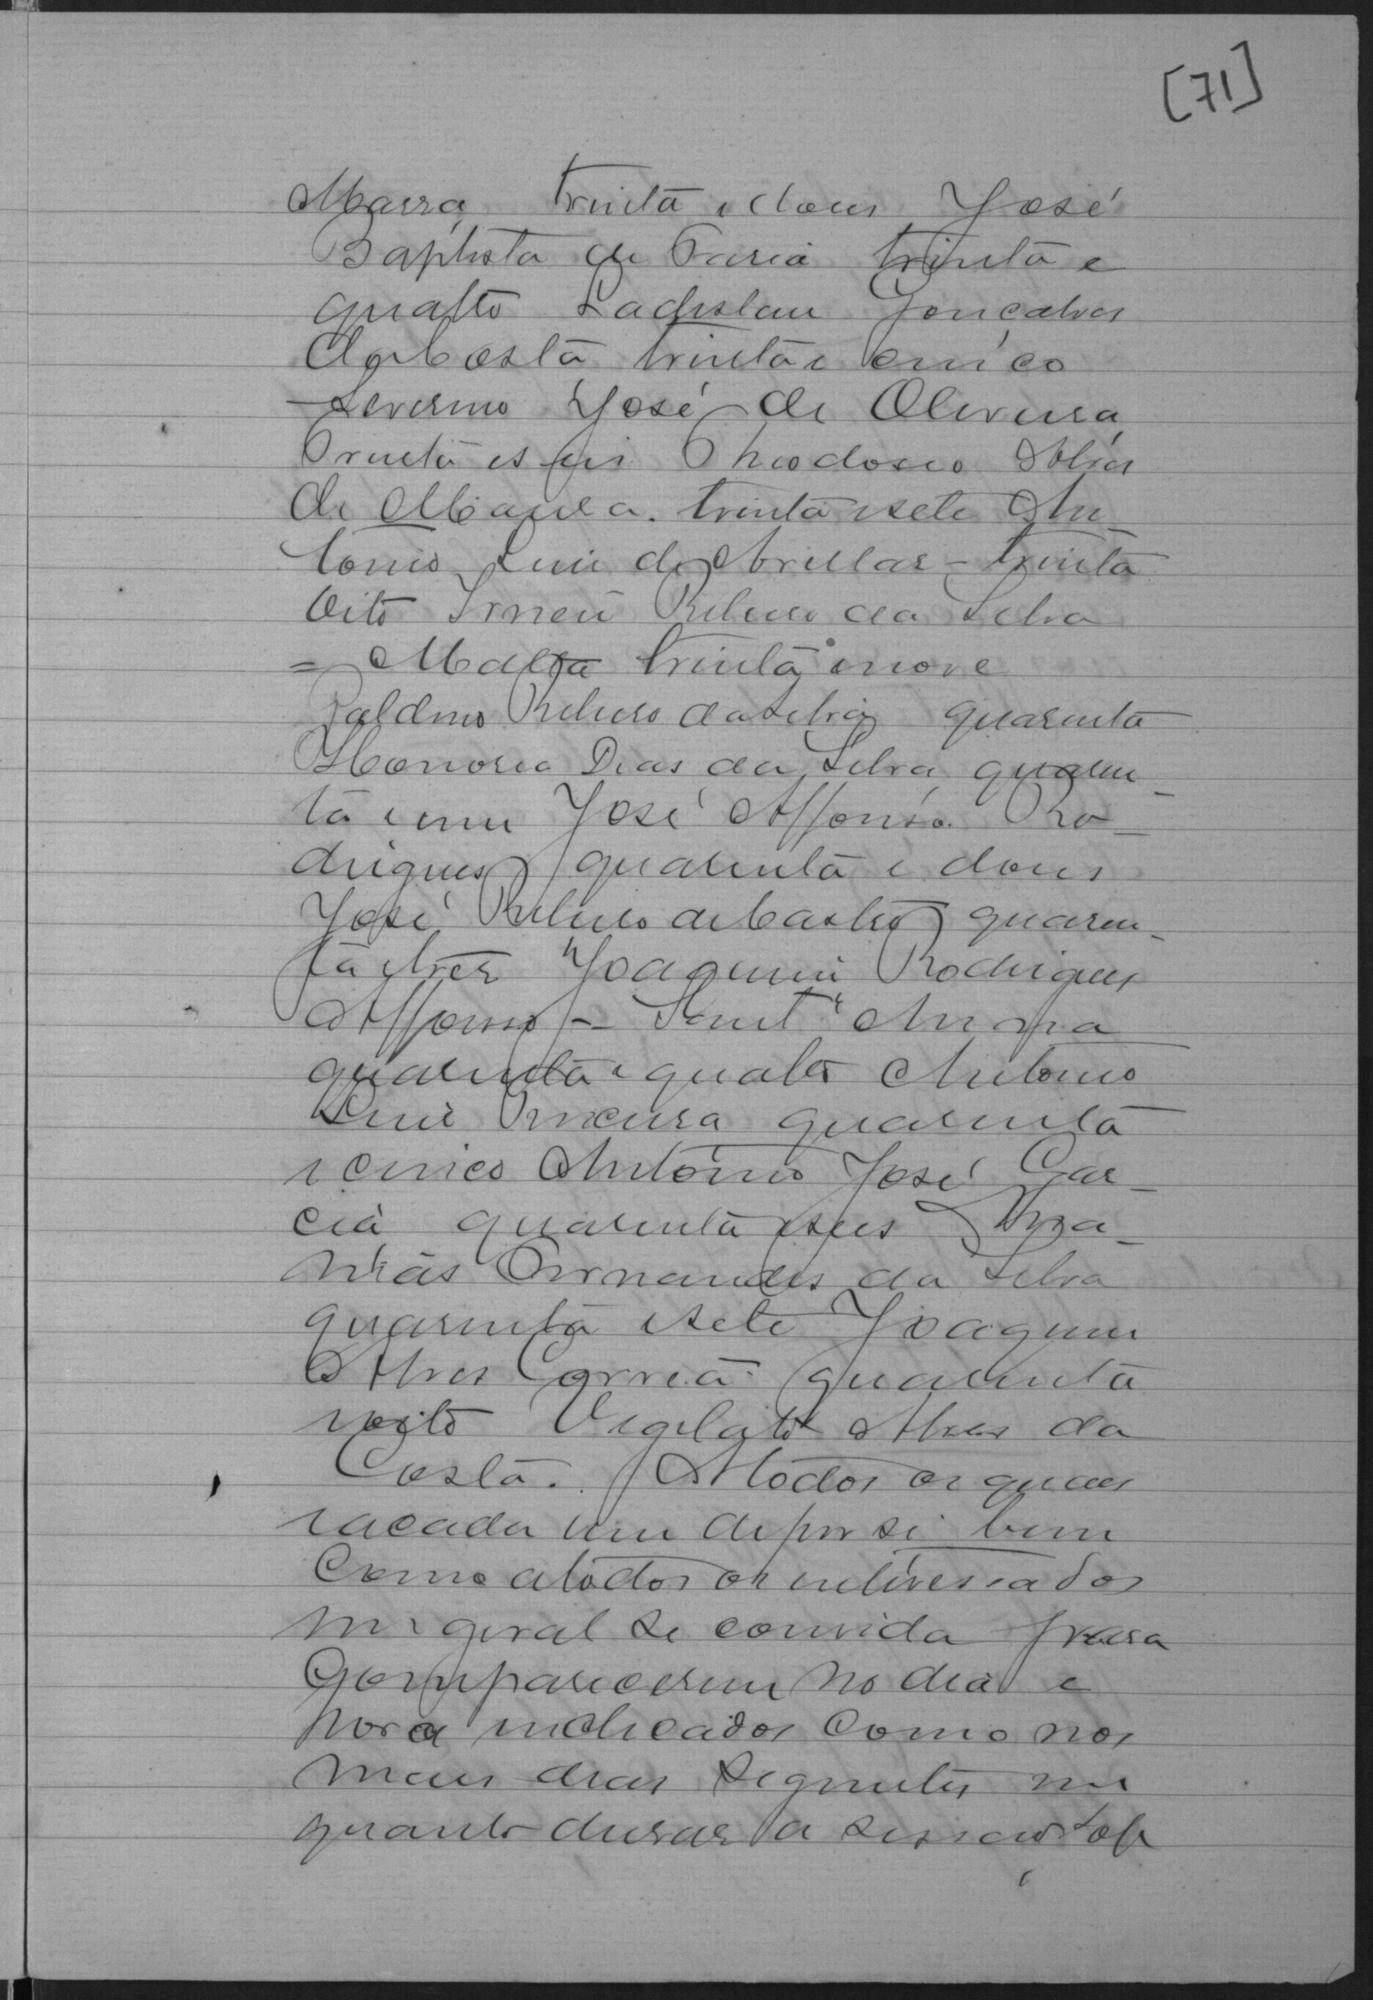 [71]
Marra trinta e dous José
Baptista de Faria trinta e
quatro Ladislau Gonçalves
da Costa trinta e cinco
Severino José de Oliveira
trinta e seis Theodosio Alves
de trinta e sete An-
tonio Luiz de trinta
oito Irineu Ribeiro da Silva
= Malta trinta e nove
Galdino Ribeiro da Silva quarenta
Honorio Dias da Silva quaren-
ta e um José Affonso Ro-
drigues quarenta e dous
José Ribeiro de Castro quaren-
ta e tres Joaquim Rodrigues
Affonso - Sant'Anna
quarenta e quatro Antonio
Luiz quarenta
e cinco Antonio José Gar-
cia quarenta e seis Ana-
nias Fernandes da Silva
quarenta e sete Joaquim
Alves Corrêa quarenta
e oito Vigilato Alves da
Costa. A todos os quaes
e a cada um de per si bem
como a todos os interessados
em geral se convida para
comparecerem no dia e
hora indicados como nos
mais dias seguintes em
quanto durar a sessão sob